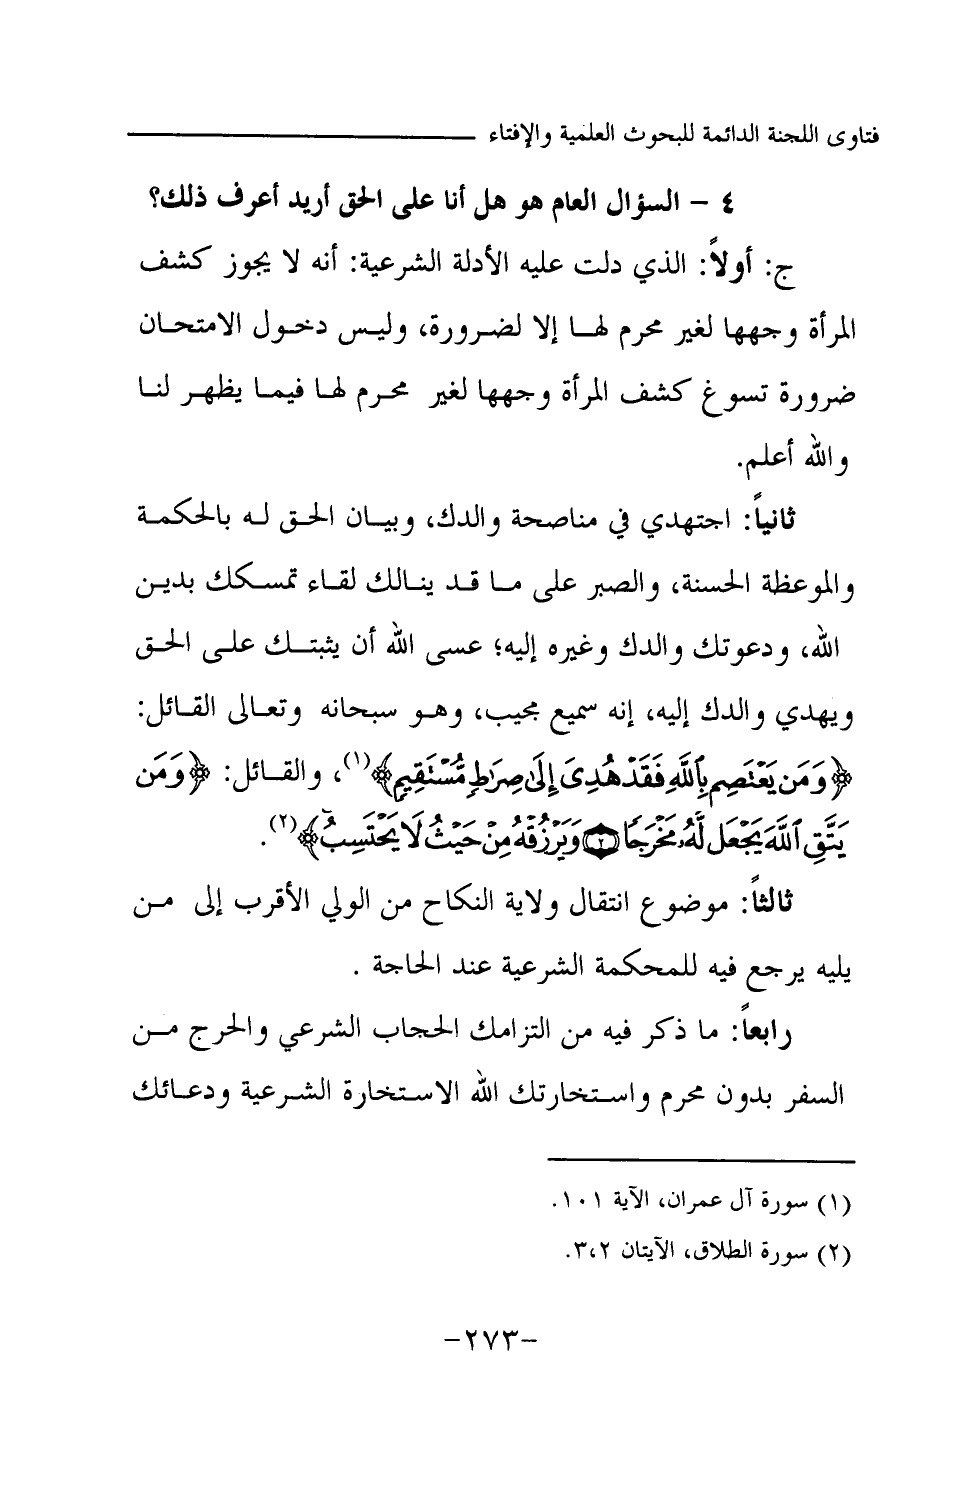 فتاوى اللجنة الدائمة للبحوث العلمية والإفتاء
٤ - السؤال العام هو هل أنا على الحق أريد أعرف ذلك؟
ج: أولاً: الذي دلت عليه الأدلة الشرعية: أنه لا يجوز كشف
المرأة وجهها لغير محرم لها إلا لضرورة، وليس دخول الامتحان
ضرورة تسوغ كشف المرأة وجهها لغير محرم لها فيما يظهر لنا
والله أعلم.
ثانياً: اجتهدي في مناصحة والدك، وبيان الحق له بالحكمة
والموعظة الحسنة، والصبر على ما قد ينالك لقاء تمسكك بدين
الله، ودعوتك والدك وغيره إليه؛ عسى الله أن يثبتك على الحق
ويهدي والدك إليه، إنه سميع مجيب، وهو سبحانه وتعالى القائل:
﴿وَمَن يَعْتَصِم بِٱللَّهِ فَقَدْ هُدِىَ إِلَىٰ صِرَٰطٍ مُّسْتَقِيمٍ﴾(١)، والقائل: ﴿وَمَن
يَتَّقِ ٱللَّهَ يَجْعَل لَّهُۥ مَخْرَجًا ۝٢ وَيَرْزُقْهُ مِنْ حَيْثُ لَا يَحْتَسِبُ﴾(٢).
ثالثاً: موضوع انتقال ولاية النكاح من الولي الأقرب إلى من
يليه يرجع فيه للمحكمة الشرعية عند الحاجة .
رابعاً: ما ذكر فيه من التزامك الحجاب الشرعي والحرج من
السفر بدون محرم واستخارتك الله الاستخارة الشرعية ودعائك
(١) سورة آل عمران، الآية ١٠١.
(٢) سورة الطلاق، الآيتان ٣،٢.
-٢٧٣-